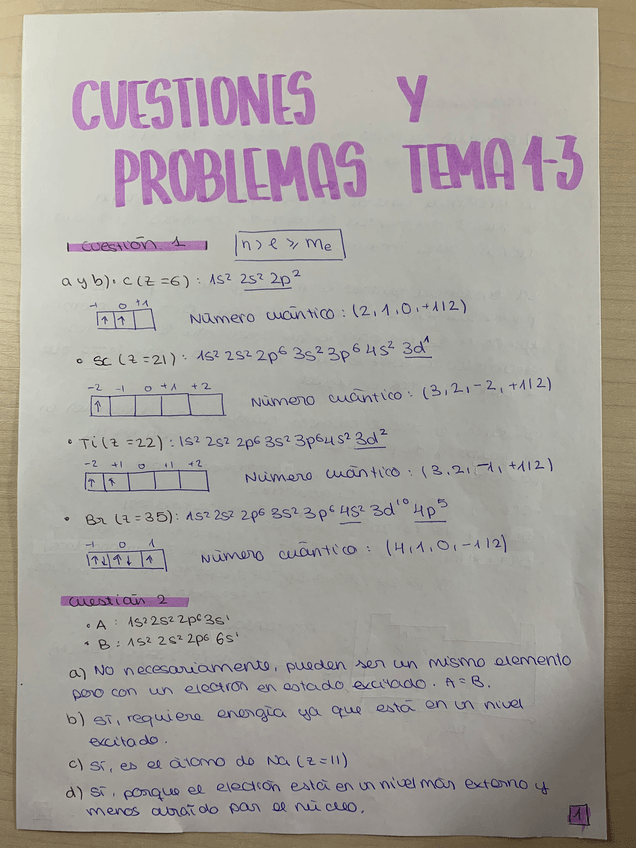 CUESTIONES Y
PROBLEMAS TEMA 1-3
CUESTIÓN 1 n > l ≥ me
a y b). C (Z=6) : 1s² 2s² 2p²
-1 0 +1
↑ ↑ Número cuántico : (2, 1, 0, +1/2)
• Sc (Z=21) : 1s² 2s² 2p⁶ 3s² 3p⁶ 4s² 3d¹
-2 -1 0 +1 +2
↑ Número cuántico : (3, 2, -2, +1/2)
• Ti (Z=22) : 1s² 2s² 2p⁶ 3s² 3p⁶ 4s² 3d²
-2 +1 0 +1 +2
↑ ↑ Número cuántico : (3, 2, -1, +1/2)
• Br (Z=35) : 1s² 2s² 2p⁶ 3s² 3p⁶ 4s² 3d¹⁰ 4p⁵
-1 0 1
↑↓ ↑↓ ↑ Número cuántico : (4, 1, 0, -1/2)
Cuestión 2
• A : 1s² 2s² 2p⁶ 3s¹
• B : 1s² 2s² 2p⁶ 6s¹
a) No necesariamente, pueden ser un mismo elemento
pero con un electrón en estado excitado. A = B.
b) Sí, requiere energía ya que está en un nivel
excitado.
c) Sí, es el átomo de Na (Z=11)
d) Sí, porque el electrón está en un nivel más externo y
menos atraído por el núcleo.
1